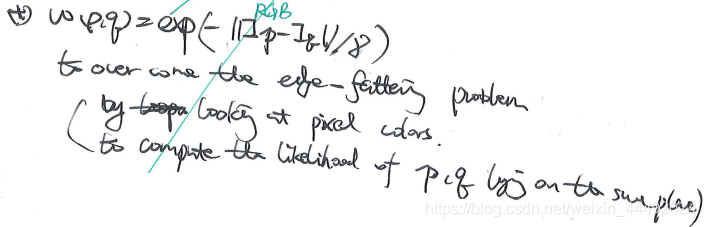 RGB
(*) w(p,q) = exp(-||Ip-Iq||/γ)
to overcome the edge-fattening problem
by looking at pixel colors.
(to compute the likelihood of p,q lying on the same plane)
https://blog.csdn.net/weixin_44